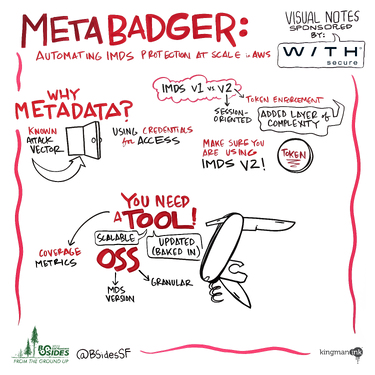 METABADGER:
AUTOMATING IMDS PROTECTION AT SCALE in AWS
VISUAL NOTES
SPONSORED
BY:
W/TH
secure
WHY
METADATA?
KNOWN
ATTACK
VECTOR
USING CREDENTIALS
for ACCESS
IMDS V1 vs V2
TOKEN ENFORCEMENT
SESSION-
ORIENTED
ADDED LAYER of
COMPLEXITY
MAKE SURE YOU
ARE USING
IMDS V2!
TOKEN
YOU NEED
A TOOL!
SCALABLE
UPDATED
(BAKED IN)
OSS
COVERAGE
METRICS
MDS
VERSION
GRANULAR
BSIDES
FROM THE GROUND UP
@BSidesSF
kingmanink